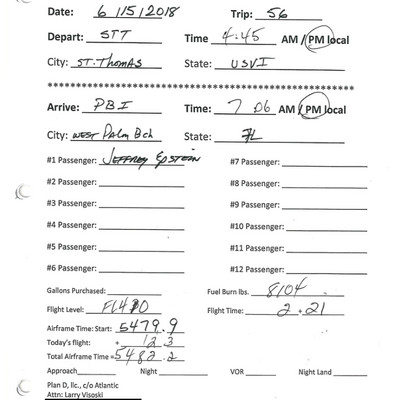 Date: 6/15/2018 Trip: 56
Depart: STT Time 4:45 AM / PM local
City: ST. THOMAS State: USVI
****************************************************************
Arrive: PBI Time: 7 06 AM / PM local
City: WEST Palm Bch State: FL
#1 Passenger: JEFFREY EPSTEIN #7 Passenger:
#2 Passenger: #8 Passenger:
#3 Passenger: #9 Passenger:
#4 Passenger: #10 Passenger:
#5 Passenger: #11 Passenger:
#6 Passenger: #12 Passenger:
Gallons Purchased: Fuel Burn lbs. 8104
Flight Level: Flight Time: 2.21
Airframe Time: Start: 5479.9
Today's flight: + 2.3
Total Airframe Time = 5482.2
Approach Night VOR Night Land
Plan D, llc., c/o Atlantic
Attn: Larry Visoski